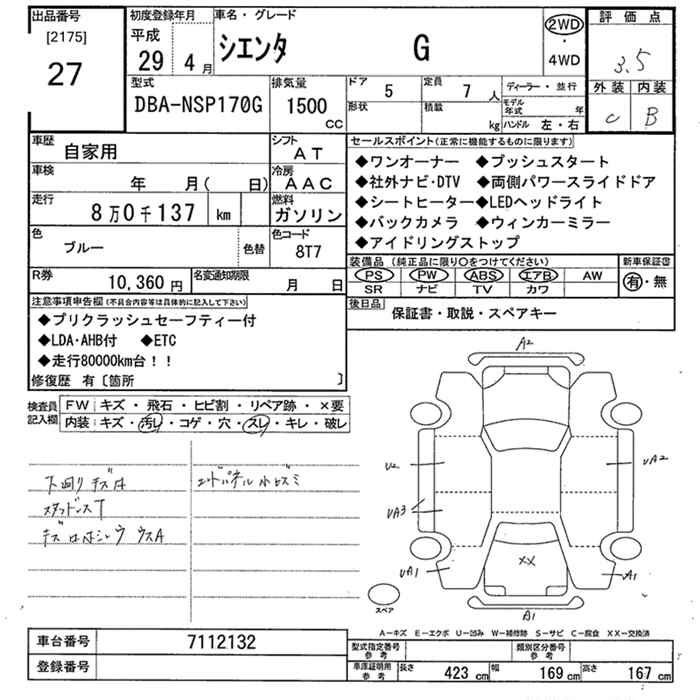 出品番号 初度登録年月 車名・グレード 評価点
[2175] 平成 シエンタ G 2WD
27 29 4月 ・ 3.5
4WD 外装 内装
型式 排気量 ドア 5 定員 7人 ディーラー・並行 C B
DBA-NSP170G 1500 CC 形状 積載 kg モデル年式 年
ハンドル 左・右
車歴 自家用 シフト AT セールスポイント(正常に機能するものに限ります)
車検 年 月( 日) 冷房 AAC ◆ワンオーナー ◆プッシュスタート
走行 8万0千137 km 燃料 ガソリン ◆社外ナビ・DTV ◆両側パワースライドドア
色 ブルー 色替 色コード 8T7 ◆シートヒーター◆LEDヘッドライト
◆バックカメラ ◆ウィンカーミラー
◆アイドリングストップ
R券 10,360円 名変通知期限 月 日 装備品(純正品に限り○をつけてください) 新車保証書
PS PW ABS エアB AW 有・無
SR ナビ TV カワ
注意事項申告欄(不具合内容等は具体的に記入して下さい) 後日品 保証書・取説・スペアキー
◆プリクラッシュセーフティー付
◆LDA・AHB付 ◆ETC
◆走行80000km台！！
修復歴 有〔箇所 〕
検査員記入欄 FW キズ・飛石・ヒビ割・リペア跡・×要
内装 キズ・汚レ・コゲ・穴・スレ・キレ・破レ
A2
U2 UA2
下廻り キズ サ
UA3
UA1 XX A1
スペア A1
A—キズ E—エクボ U—凹み W—補修跡 S—サビ C—腐食 XX—交換済
車台番号 7112132 型式指定番号 参考 類別区分番号 参考
登録番号 車庫証明用 参考 長さ 423 cm 幅 169 cm 高さ 167 cm